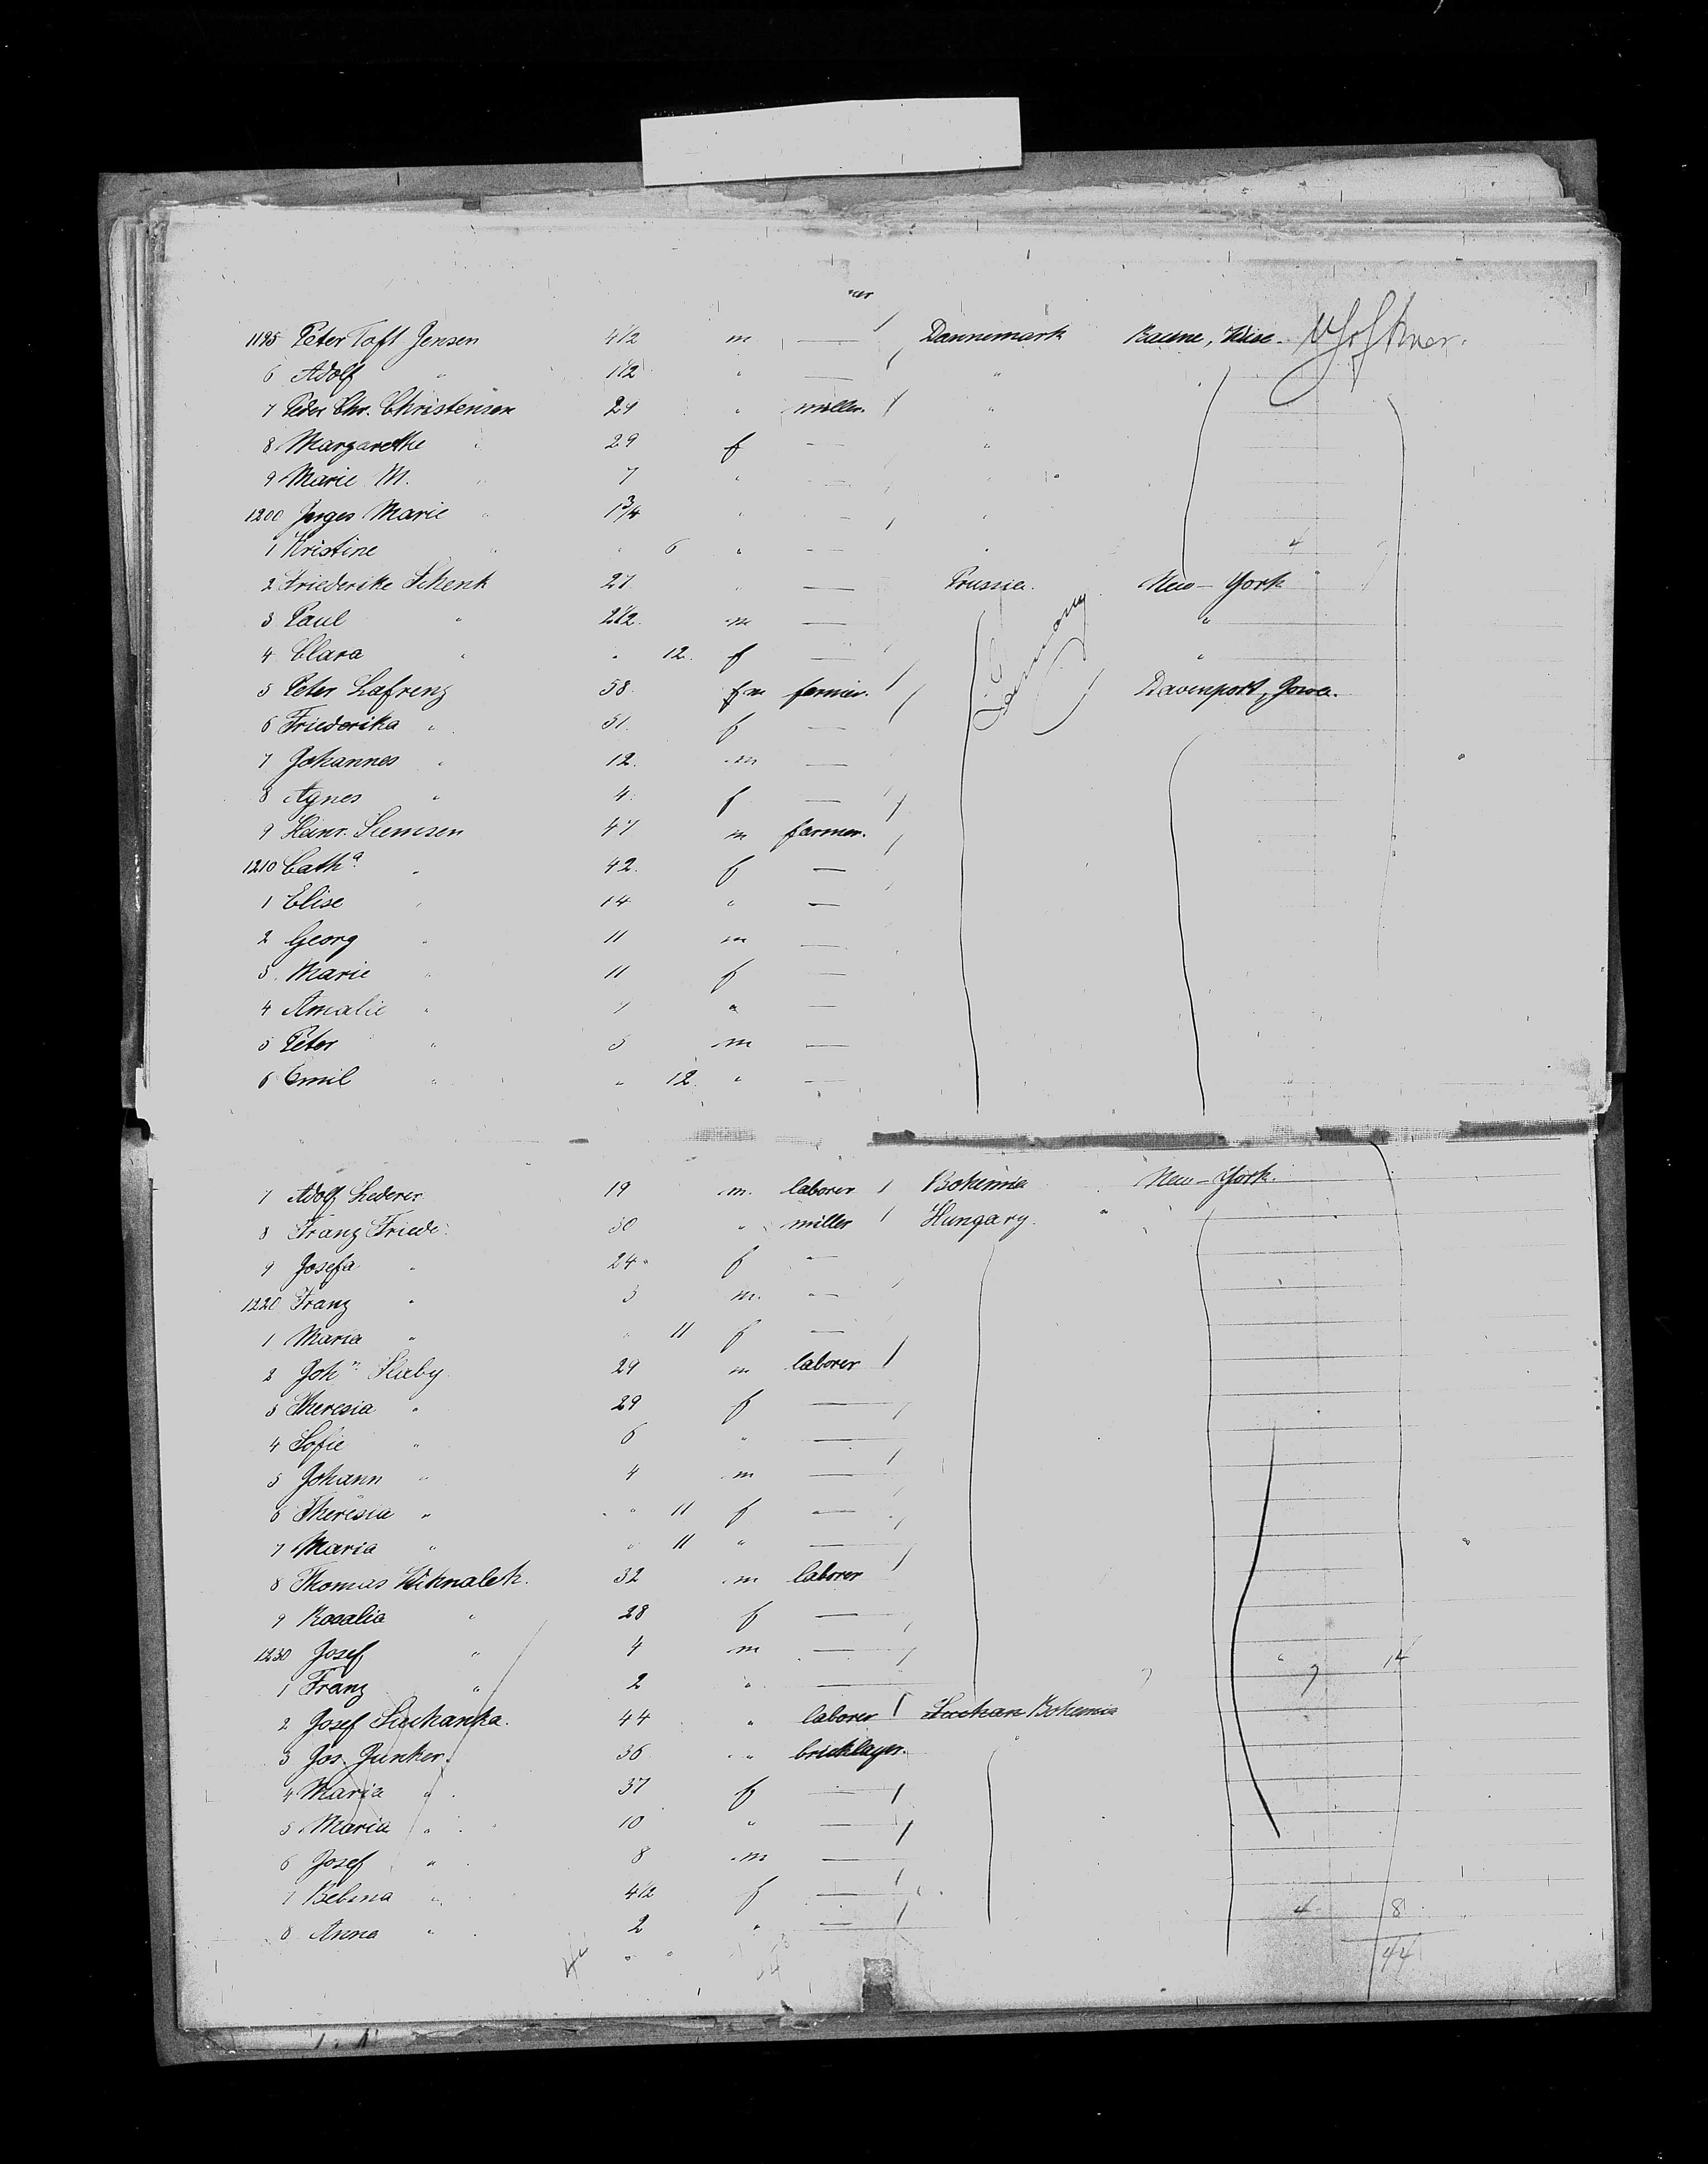 1195 Peter Toft Jensen 4 1/2 m — Dannemark Racine, Wisc.
6 Adolf " 1 1/2 " — "
7 Peder Chr. Christensen 29 " miller. "
8 Margarethe " 29 f — "
9 Marie M. " 7 " — "
1200 Marie " 1 3/4 " — "
1 Kristine " " 6 " — " 4
2 Friederike Schenk 27 " — Prussia. New-York
3 Paul " 2 1/2 m — "
4 Clara " " 12 f — "
Germany
5 Peter Lafrenz 58 m farmer. Davenport, Iowa.
6 Friederika " 51 f —
7 Johannes " 12 m —
8 Agnes " 4 f —
9 Heinr. Siemsen 47 m farmer.
1210 Catha " 42 f —
1 Elise " 14 " —
2 Georg " 11 m —
3 Marie " 11 f —
4 Amalie " 7 " —
5 Peter " 5 m —
6 Emil " " 12 " —
7 Adolf Lederer 19 m. laborer Bohemia New-York.
8 Franz Friede 30 " miller Hungary. "
9 Josefa " 24 f —
1220 Franz " 3 m. —
1 Maria " " 11 f —
2 John Slaby 29 m laborer
3 Theresia " 29 f —
4 Sofie " 6 " —
5 Johann " 4 m —
6 Theresia " " 11 f —
7 Maria " " 11 " —
8 Thomas 32 m laborer
9 Rosalia " 28 f —
1230 Josef " 4 m — 14
1 Franz " 2 " —
2 Josef Suchanka. 44 " laborer Bohemia
3 Jos. Junker. 36 " bricklayer.
4 Maria " 37 f —
5 Maria " 10 " —
6 Josef " 8 m —
7 " 4 1/2 f — 4 8
8 Anna " 2 " —
44